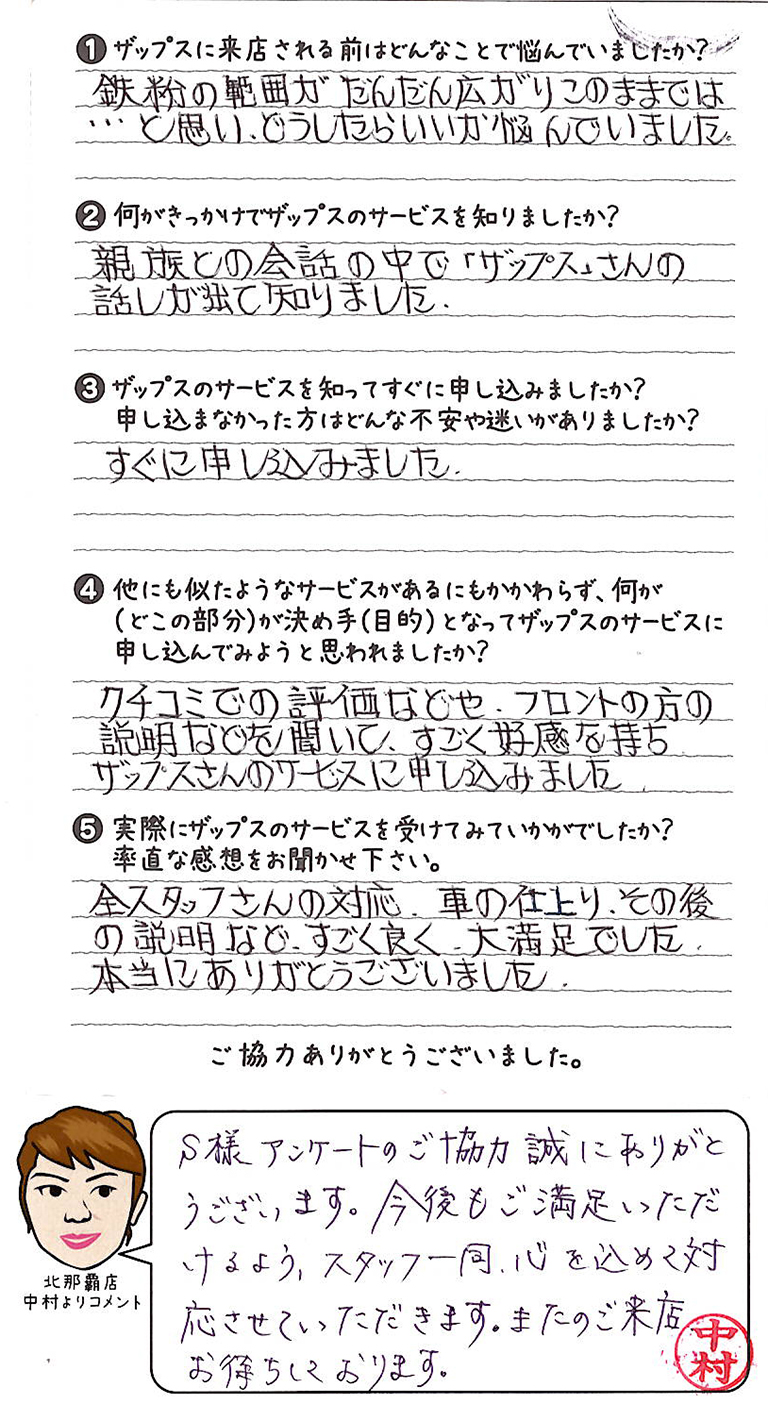 ❶ ザップスに来店される前はどんなことで悩んでいましたか?
鉄粉の範囲がだんだん広がりこのままでは
…と思い、どうしたらいいか悩んでいました。
❷ 何がきっかけでザップスのサービスを知りましたか?
親族との会話の中で「ザップス」さんの
話しが出て知りました.
❸ ザップスのサービスを知ってすぐに申し込みましたか?
申し込まなかった方はどんな不安や迷いがありましたか?
すぐに申し込みました.
❹ 他にも似たようなサービスがあるにもかかわらず、何が
(どこの部分)が決め手(目的)となってザップスのサービスに
申し込んでみようと思われましたか?
クチコミでの評価などや、フロントの方の
説明などを聞いて、すごく好感を持ち
ザップスさんのサービスに申し込みました
❺ 実際にザップスのサービスを受けてみていかがでしたか?
率直な感想をお聞かせ下さい。
全スタッフさんの対応、車の仕上り、その後
の説明など、すごく良く、大満足でした.
本当にありがとうございました.
ご協力ありがとうございました。
S様 アンケートのご協力誠にありがと
うございます。今後もご満足いただ
けるよう、スタッフ一同、心を込めて対
応させていただきます。またのご来店
お待ちしております。
中村
北那覇店
中村よりコメント